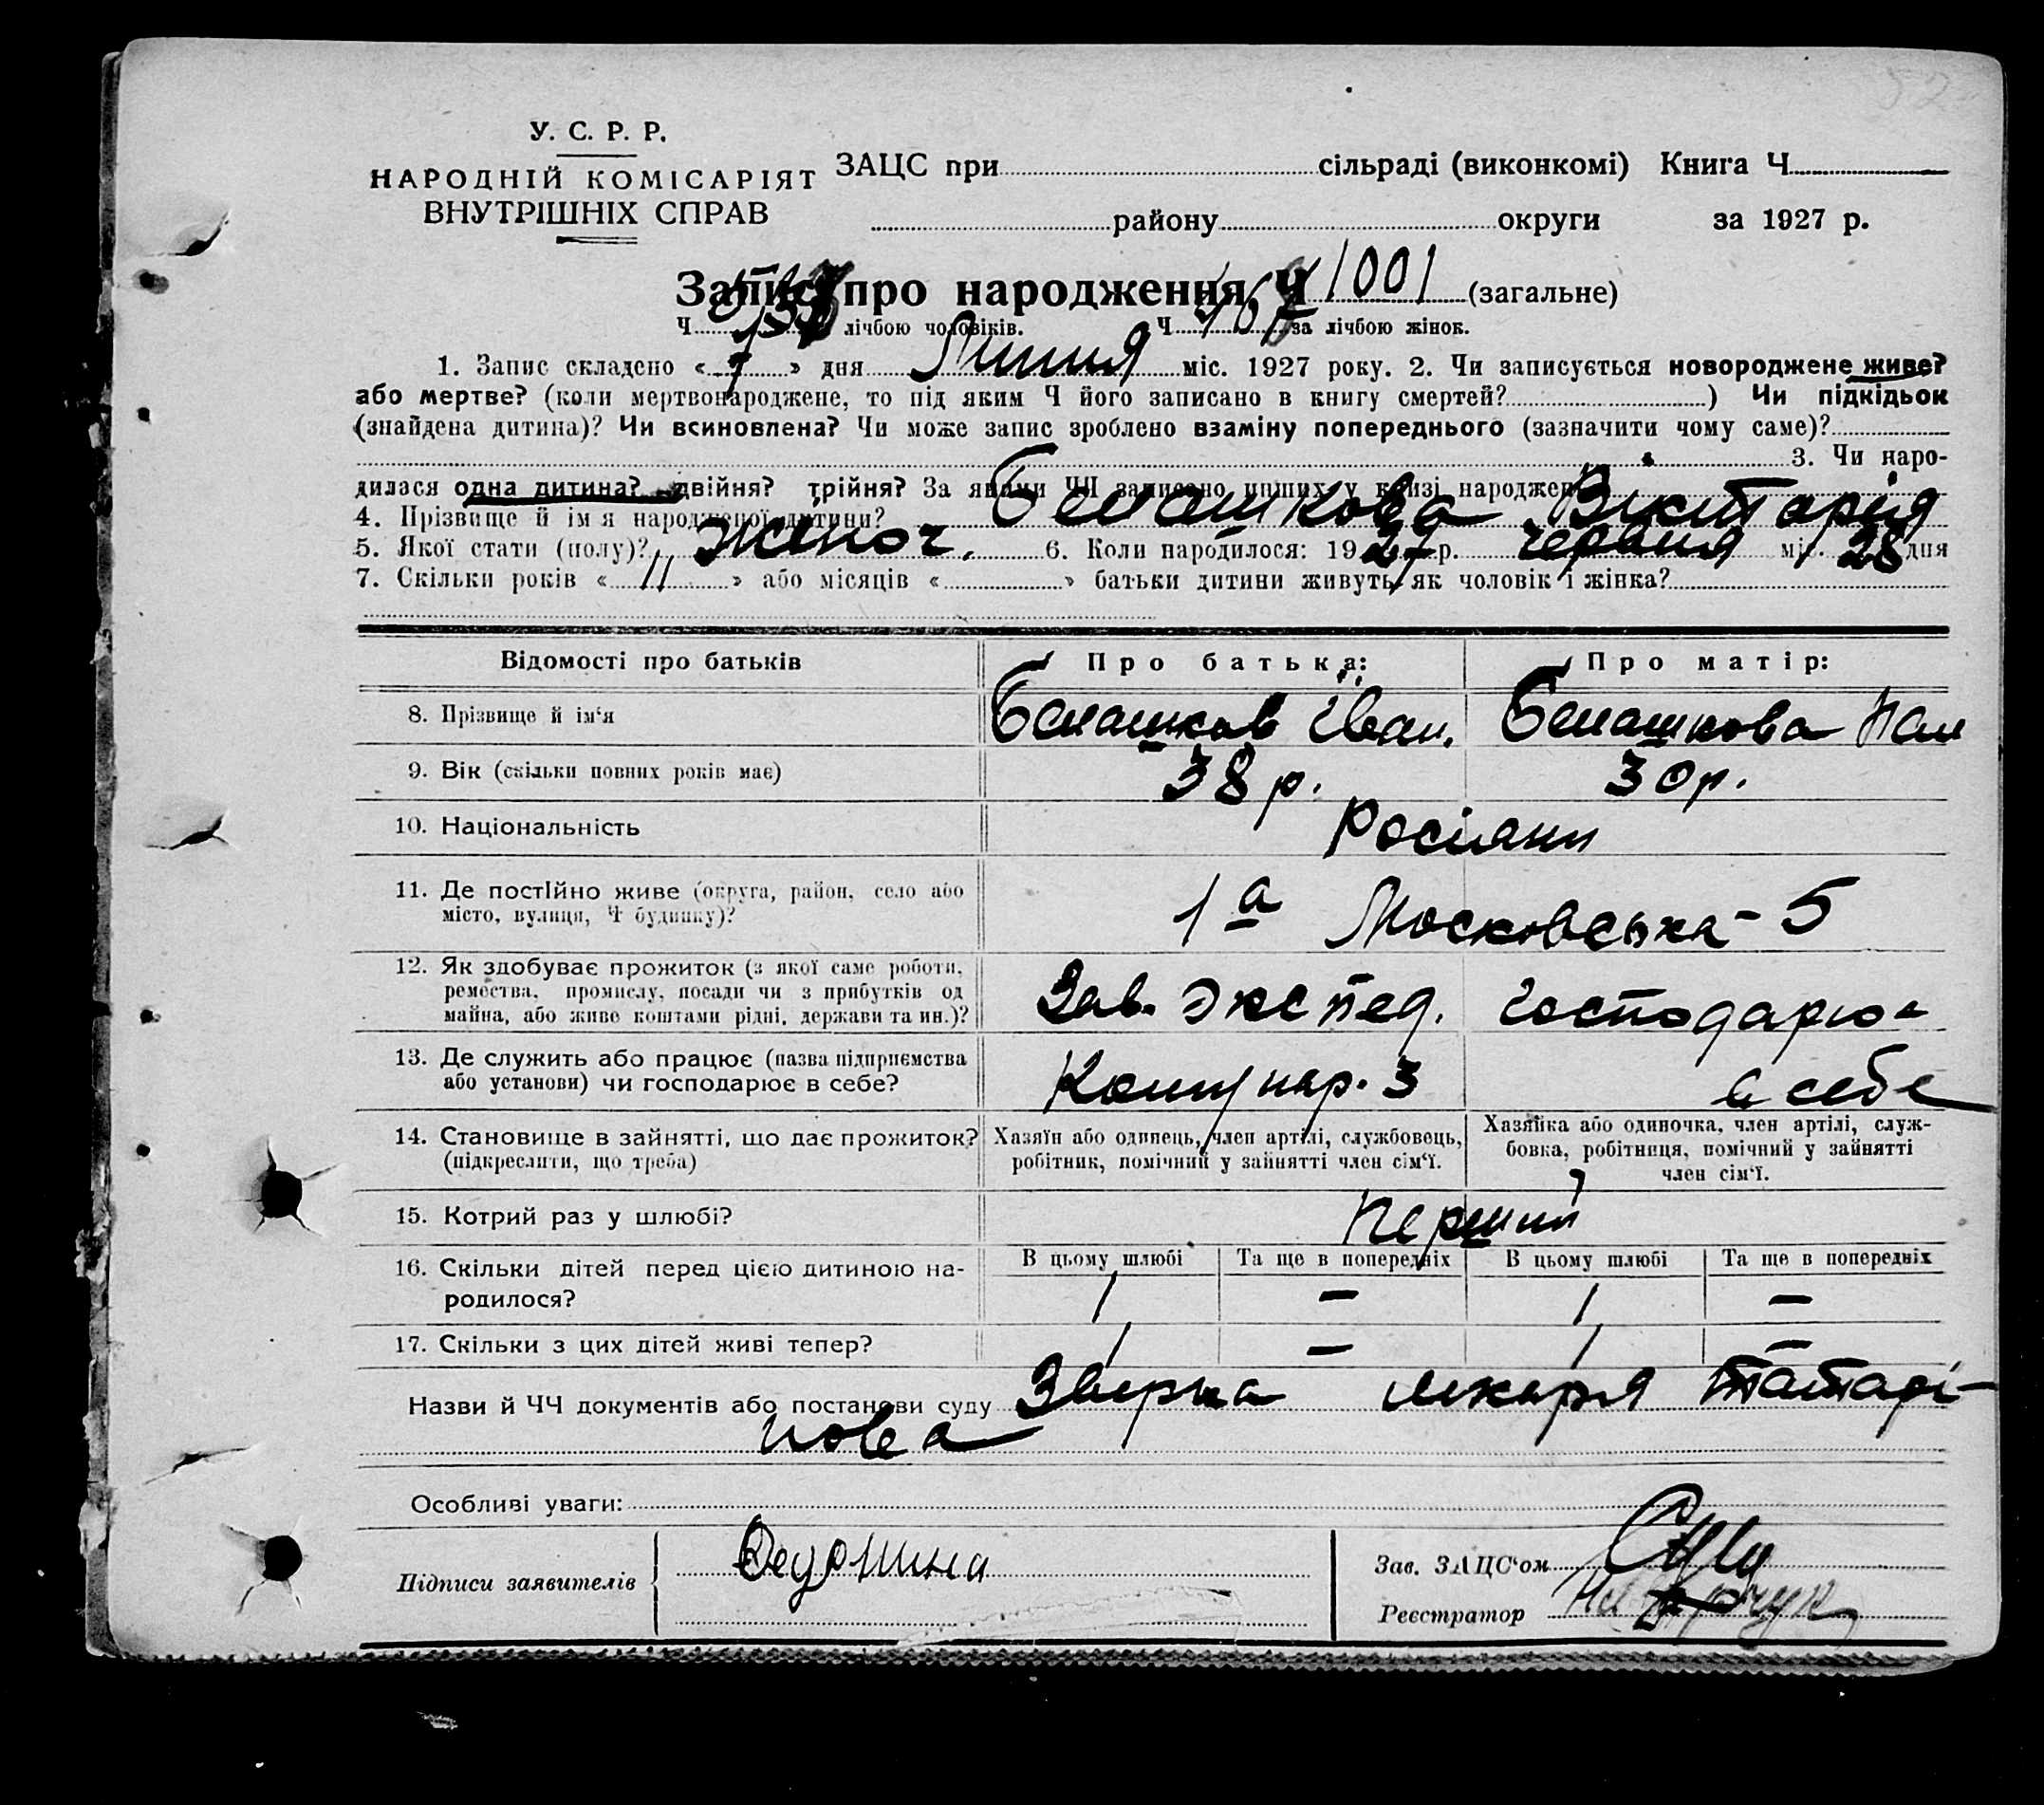 У. С. Р. Р.
НАРОДНІЙ КОМІСАРІЯТ
ВНУТРІШНІХ СПРАВ
ЗАЦС при сільраді (виконкомі) Книга Ч
району округи за 1927 р.
Запис про народження, Ч 1001 (загальне)
Ч лічбою чоловіків. Ч за лічбою жінок.
1. Запис складено « 7 » дня Липня міс. 1927 року. 2. Чи записується новороджене живе?
або мертве? (коли мертвонароджене, то під яким Ч його записано в книгу смертей? ) Чи підкідьок
(знайдена дитина)? Чи всиновлена? Чи може запис зроблено взаміну попереднього (зазначити чому саме)?
3. Чи наро-
дилася одна дитина? двійня? трійня? За якими ЧЧ записано инших у книзі народжень
4. Прізвище й ім'я народженої дитини? Белашкова Вікторія
5. Якої стати (полу)? Жіноч. 6. Коли народилося: 1927 р. червня міс. 28 дня
7. Скільки років « 11 » або місяців « » батьки дитини живуть як чоловік і жінка?
Відомості про батьків Про батька: Про матір:
8. Прізвище й ім'я Белашков Іван. Белашкова Пел
9. Вік (скільки повних років має) 38 р. 30 р.
10. Національність Росіяни
11. Де постійно живе (округа, район, село або
місто, вулиця, Ч будинку)? 1а Московська - 5
12. Як здобуває прожиток (з якої саме роботи,
ремества, промислу, посади чи з прибутків од
майна, або живе коштами рідні, держави та ин.)? Зав. Экспед. Господарює
13. Де служить або працює (назва підприємства
або установи) чи господарює в себе? в себе
14. Становище в зайнятті, що дає прожиток?
(підкреслити, що треба)
Хазяїн або одинець, член артілі, службовець,
робітник, помічний у зайнятті член сім'ї.
Хазяйка або одиночка, член артілі, служ-
бовка, робітниця, помічний у зайнятті
член сім'ї.
15. Котрий раз у шлюбі? Перший
16. Скільки дітей перед цією дитиною на-
родилося?
В цьому шлюбі Та ще в попередніх В цьому шлюбі Та ще в попередніх
1 — 1 —
17. Скільки з цих дітей живі тепер? 1 — 1 —
Назви й ЧЧ документів або постанови суду лекаря Татарі-
нова
Особливі уваги:
Підписи заявителів
Зав. ЗАЦС'ом
Реєстратор